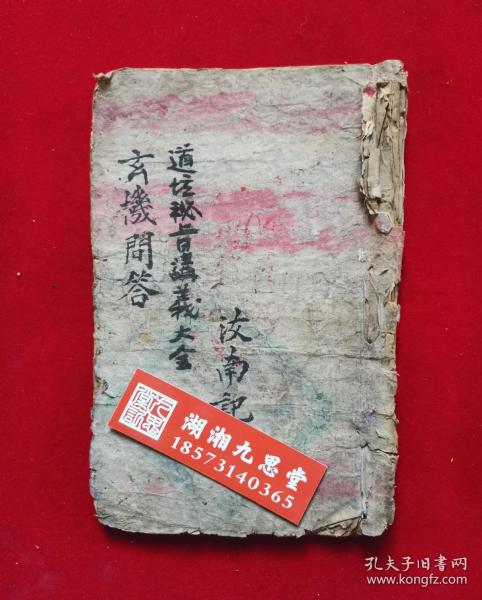 汝南記
道坛秘旨講義大全
玄機問答
湖湘九思堂
18573140365
孔夫子旧书网
www.kongfz.com